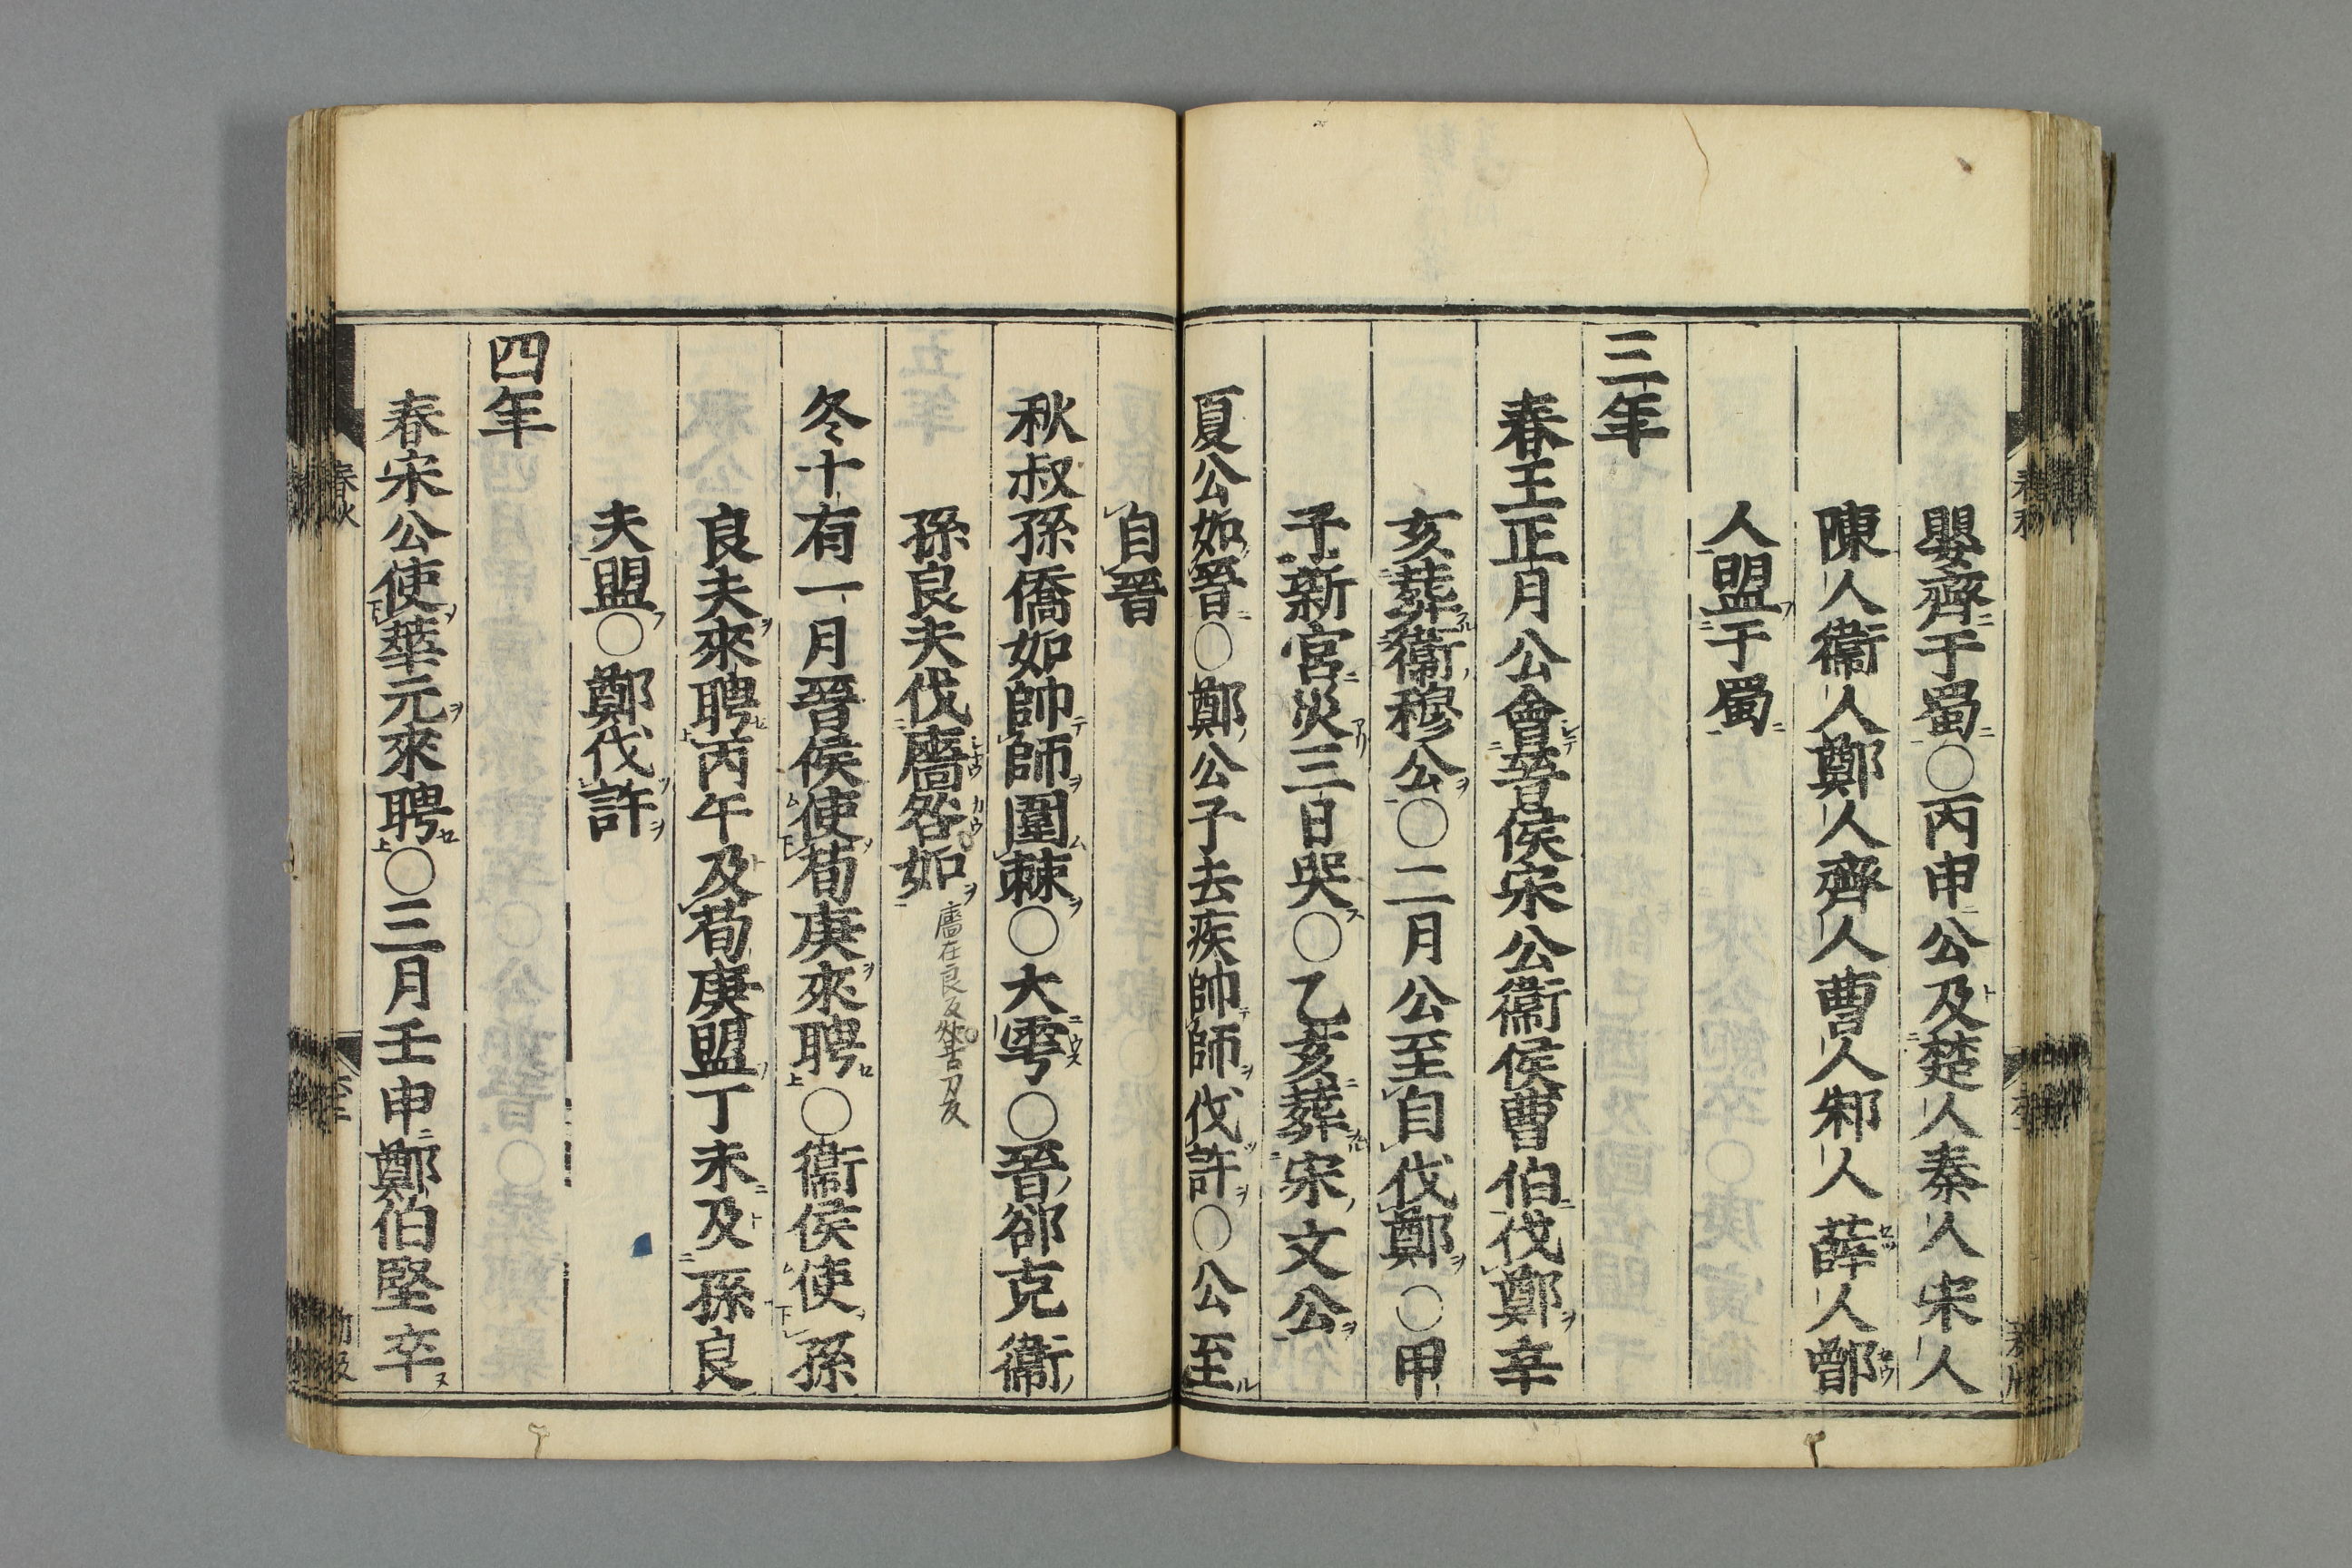 嬰齊于蜀○丙申公及楚人秦人宋人
陳人衞人鄭人齊人曹人邾人薛人鄫
人盟于蜀
三年
春王正月公會晉侯宋公衞侯曹伯伐鄭辛
亥葬衞穆公○二月公至自伐鄭○甲
子新宮災三日哭○乙亥葬宋文公
夏公如晉○鄭公子去疾帥師伐許○公至
自晉
秋叔孫僑如帥師圍棘○大雩○晉郤克衞
孫良夫伐廧咎如
廧在良反咎古刀反
冬十有一月晉侯使荀庚來聘○衞侯使孫
良夫來聘丙午及荀庚盟丁未及孫良
夫盟○鄭伐許
四年
春宋公使華元來聘○三月壬申鄭伯堅卒
春秋